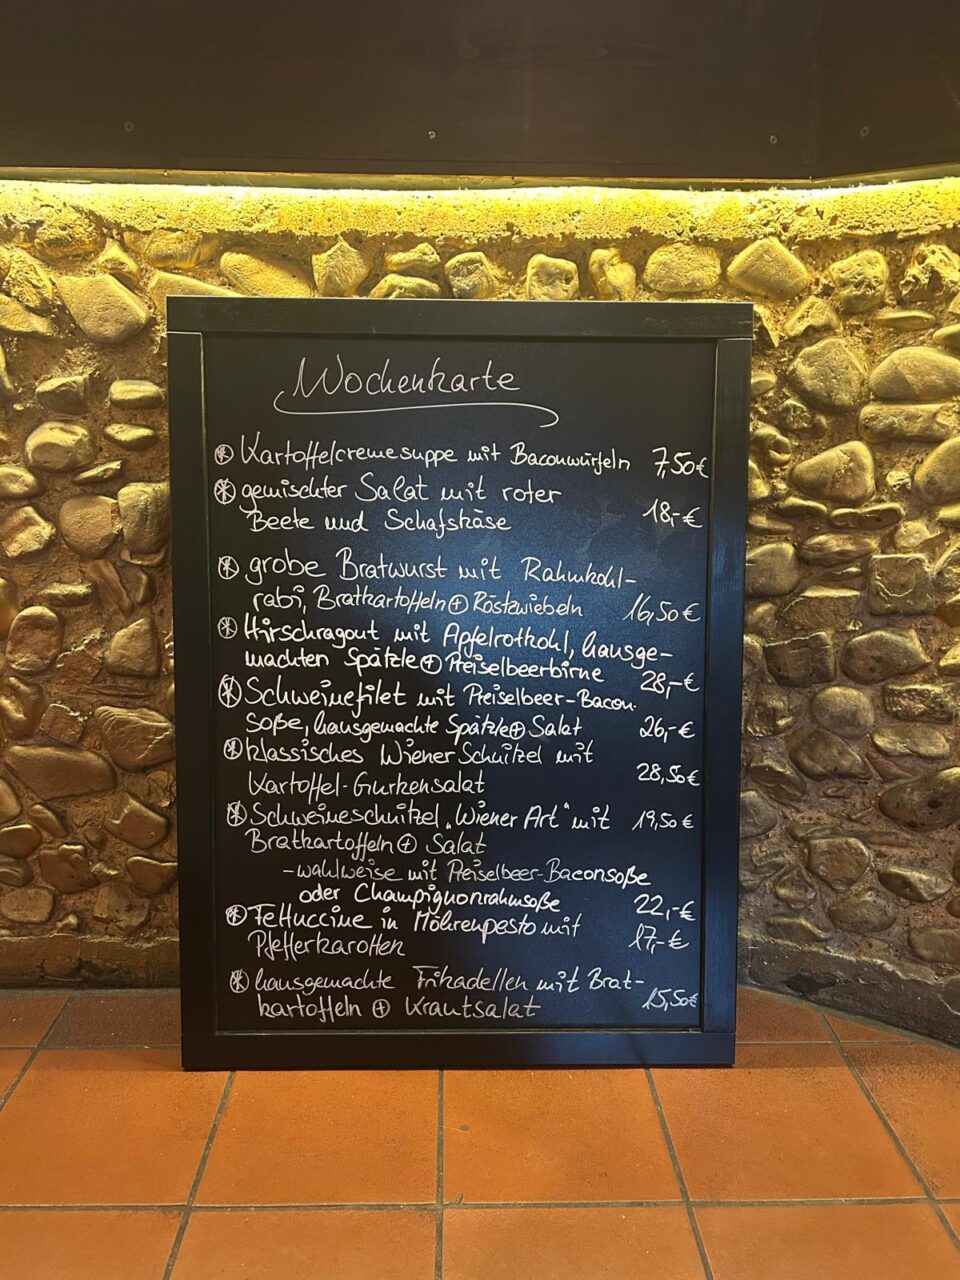 Wochenkarte
Kartoffelcremesuppe mit Baconwürfeln 7,50€
gemischter Salat mit roter
Beete und Schafskäse 18,-€
grobe Bratwurst mit Rahmkohl-
rabi, Bratkartoffeln + Röstzwiebeln 16,50€
Hirschragout mit Apfelrotkohl, hausge-
machten Spätzle + Preiselbeerbirne 28,-€
Schweinefilet mit Preiselbeer-Bacon-
soße, hausgemachte Spätzle + Salat 26,-€
klassisches Wiener Schnitzel mit
Kartoffel-Gurkensalat 28,50€
Schweineschnitzel „Wiener Art" mit 19,50€
Bratkartoffeln + Salat
-wahlweise mit Preiselbeer-Baconsoße
oder Champignonrahmsoße 22,-€
Fettuccine in Möhrenpesto mit
Pfefferkarotten 17,-€
hausgemachte Frikadellen mit Brat-
kartoffeln + Krautsalat 15,50€